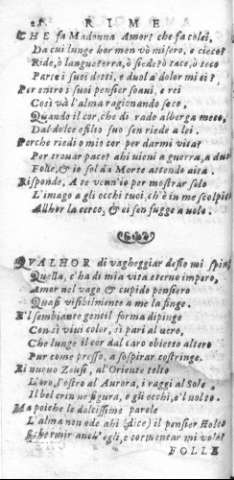 RIME
CHE fa Madonna Amor? che fa colei,
Da cui lunge hor men vò misero, e cieco?
Ride, ò langue ò siede? ò tace, ò seco
Parte i suoi detti, e duol a dolor miei?
Per entro i suoi pensier soavi, e rei
Così và l'alma ragionando seco,
Quando il cor, che di rado alberga meco,
Dal dolce essilio suo sen riede a lei.
Perche riedi o mio cor per darmi vita?
Per trovar pace? ahi vieni a guerra, a
Folle, & io sol da Morte attendo aita.
Risponde, A te venn'io per mostrar solo
L'imago a gli occhi tuoi, ch'è in me scolpita
Allhor la cerco, & ei sen fugge a volo.
QVALHOR di vagheggiar desio mi spinge
Quella, c'ha di mia vita eterno impero,
Amor nel vago & cupido pensiero
Quasi visibilmente a me la finge.
E'l sembiante gentil forma dipinge
Con sì vivi color, sì pari al vero,
Che lunge il cor dal caro obietto altero
Pur come presso, a sospirar costringe.
Ei nuovo Zeusi, al'Oriente tolto
L'oro, l'ostro al Aurora, i raggi al Sole
Il bel crin ne figura, e gli occhi, e'l volto.
Ma poiche le dolcissime parole
L'alma non ode ahi (dice) il pensier stolto
anch'egli, e tormentar mi vole?
FOLLE